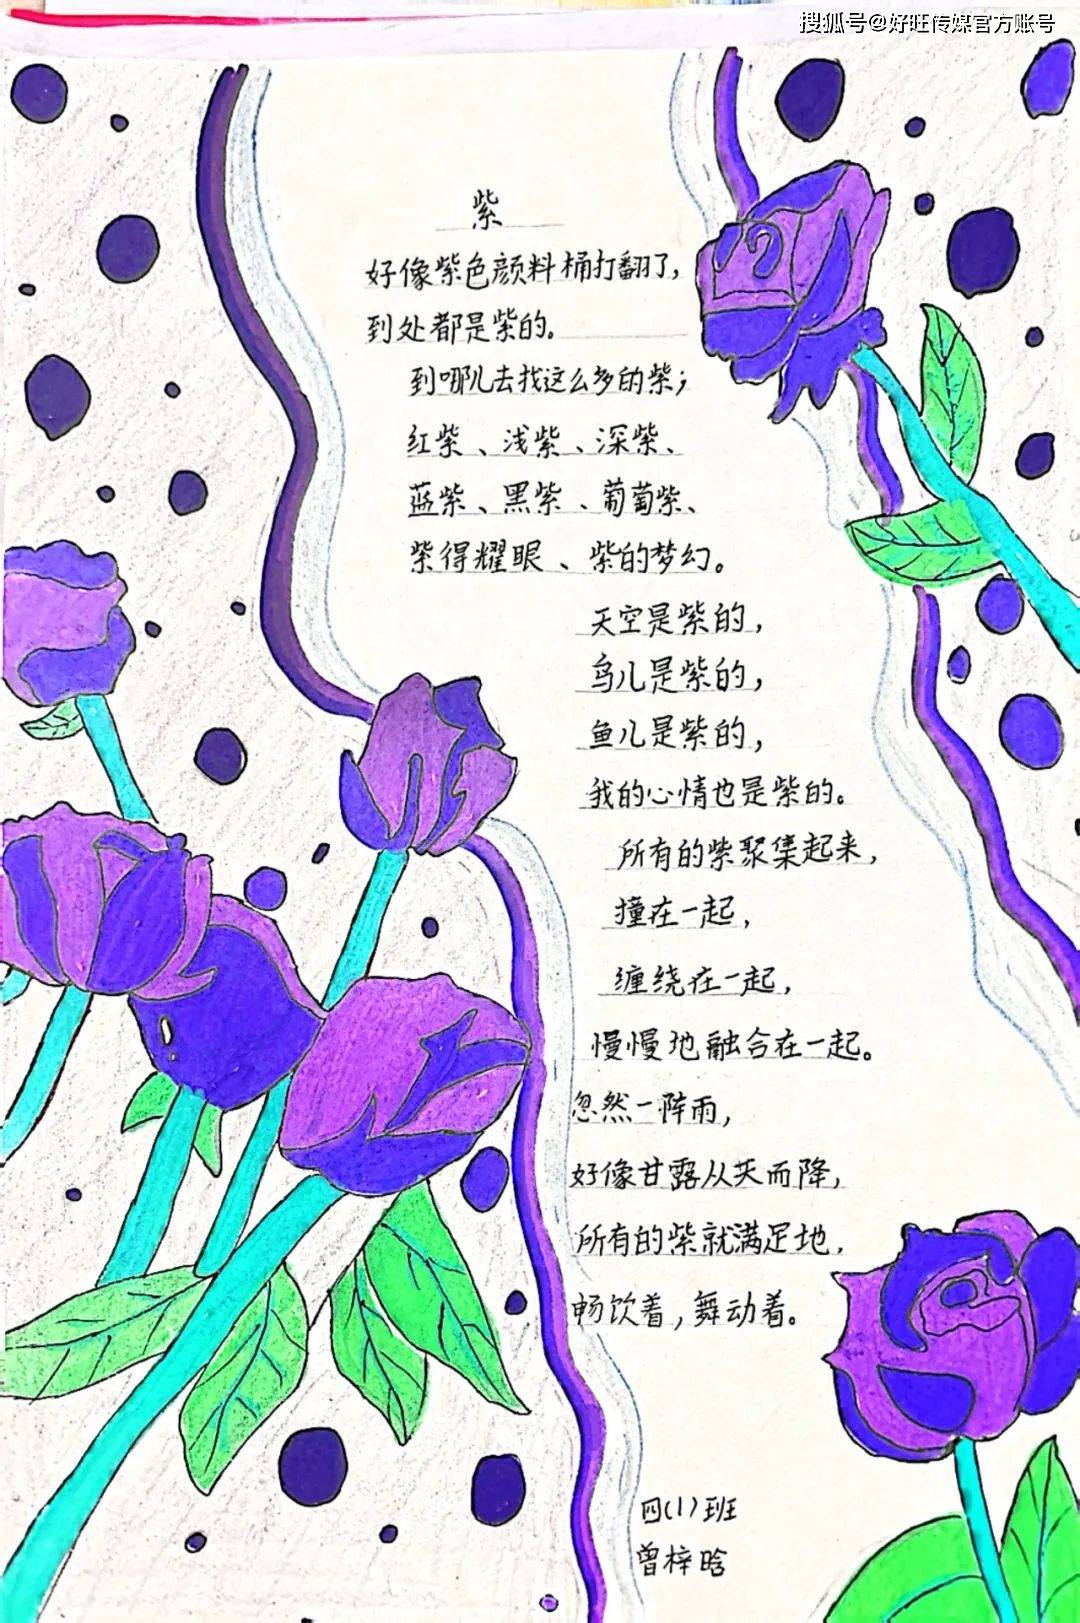 搜狐号@好旺传媒官方账号
紫
好像紫色颜料桶打翻了,
到处都是紫的。
到哪儿去找这么多的紫;
红紫、浅紫、深紫、
蓝紫、黑紫、葡萄紫、
紫得耀眼、紫的梦幻。
天空是紫的,
鸟儿是紫的,
鱼儿是紫的,
我的心情也是紫的。
所有的紫聚集起来,
撞在一起,
缠绕在一起,
慢慢地融合在一起。
忽然一阵雨,
好像甘露从天而降,
所有的紫就满足地,
畅饮着,舞动着。
四(1)班
曾梓晗